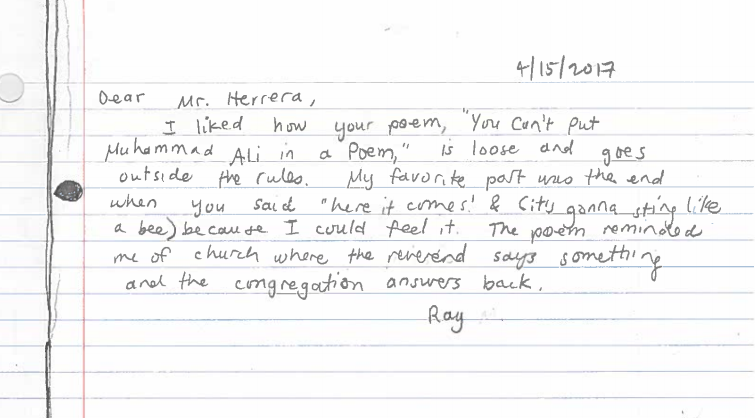 4/15/2017
Dear Mr. Herrera,
I liked how your poem, "You Can't Put
Muhammad Ali in a Poem," is loose and goes
outside the rules. My favorite part was the end
when you said "here it comes! & (its gonna sting like
a bee) because I could feel it. The poem reminded
me of church where the reverend says something
and the congregation answers back.
Ray